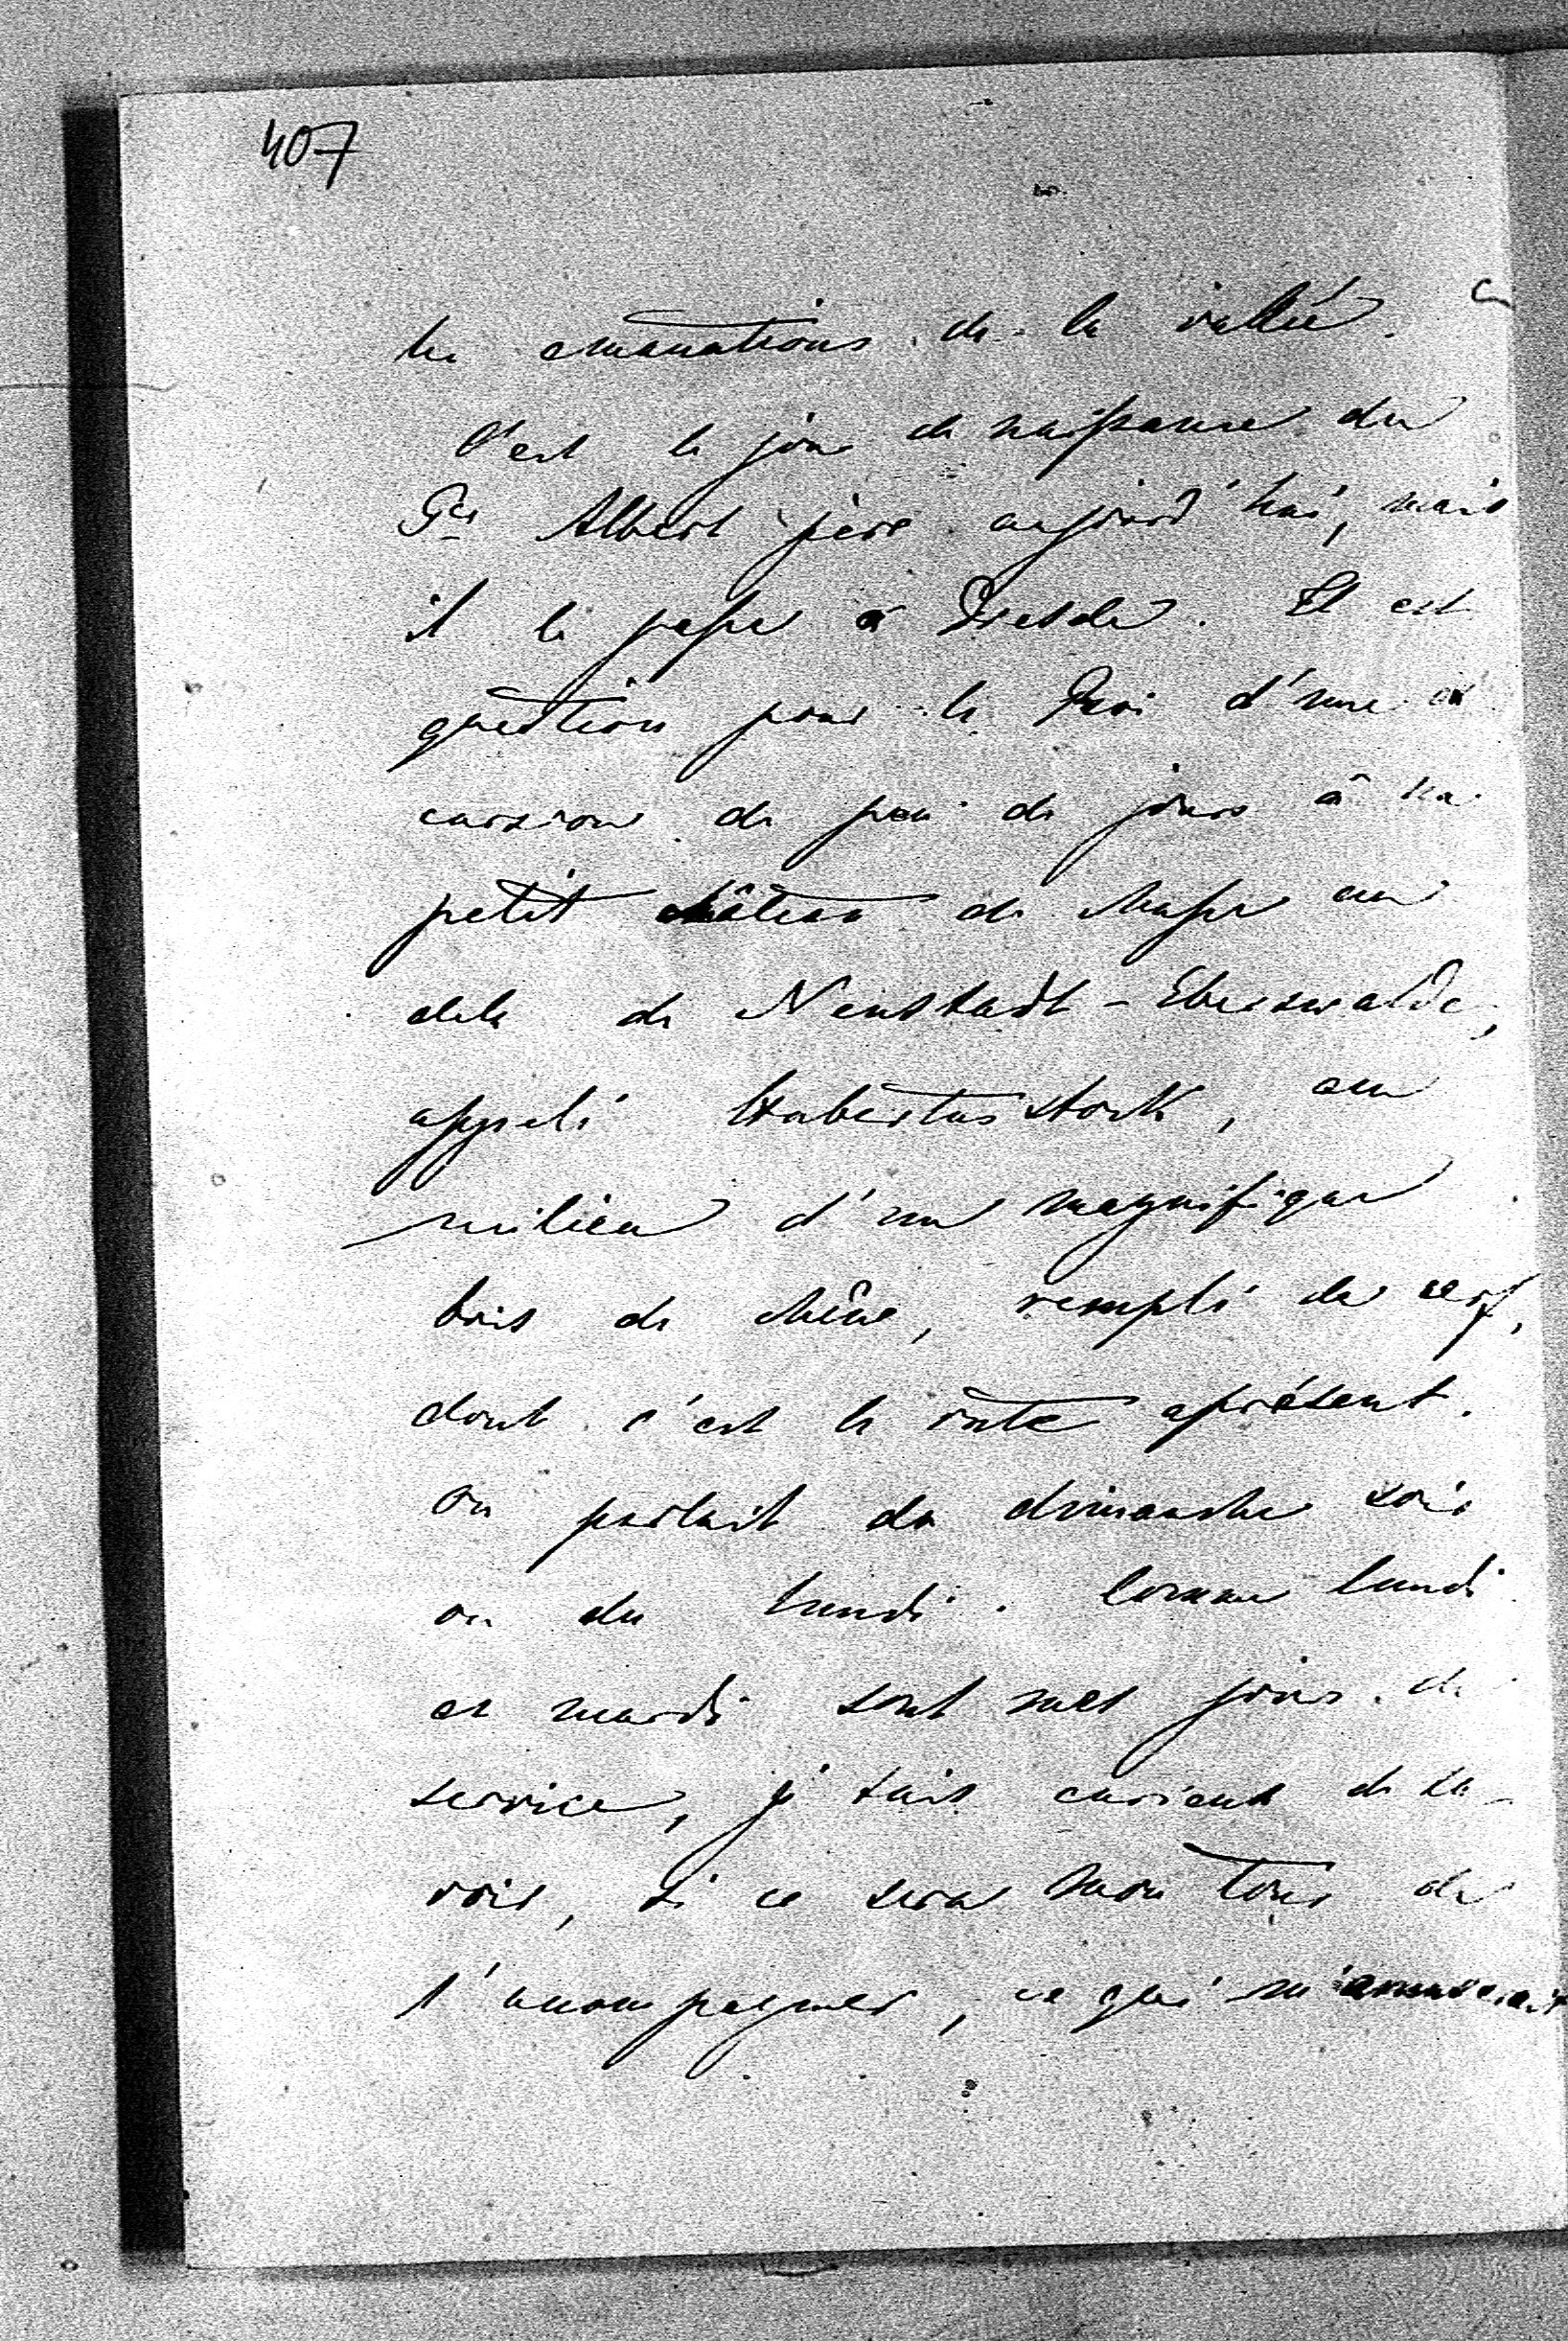 407
les emanations de la vallée.
C'est le jour de naissance du
Pce Albert père aujourd'hui, mais
il le passe à Dresde. Il est
question pour le Roi d'une ex
cursion de peu de jours à un
petit château de chasse au
dela de Neustadt-Eberswalde,
appelé Hubertusstock, au
milieu d'un magnifique
bois de chêne, rempli de cerf,
dont c'est le rute aprésent.
On parlait de dimanche soir
ou de lundi. Comme lundi
et mardi sont mes jours de
service, je suis curieux de sa-
voir, si ce sera mon tour de
l'accompagner, ce qui m'amuserait